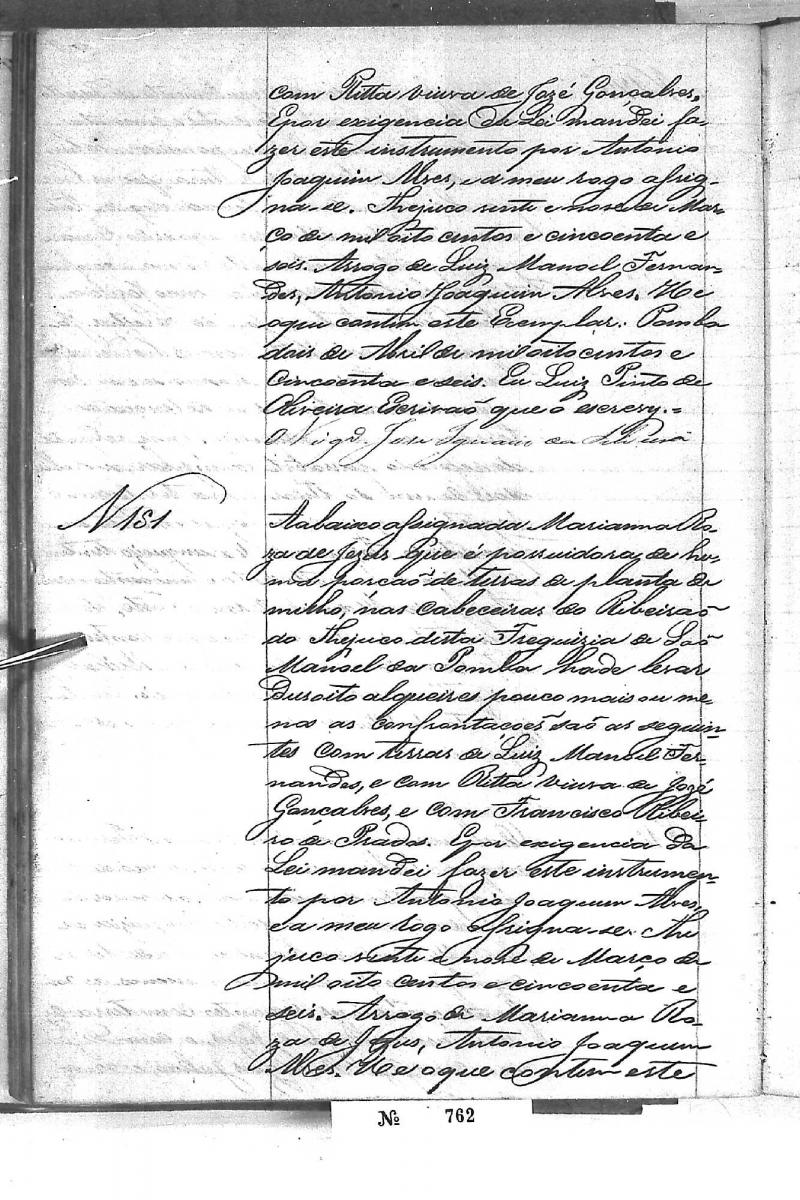 com Ritta viuva de Jozé Gonçalves.
Epor exigencia da Lei mandei fa-
zer este instrumento por Antonio
Joaquim Alves, e a meu rogo assig-
na-se. Thejuco vinte e nove de Mar-
ço de mil oito centos e cincoenta e
seis. Arrogo de Luiz Manoel Fernan-
des, Antonio Joaquim Alves. He
oque contem este Exemplar. Pomba
dois de Abril de mil oito centos e
Cincoenta e seis. Eu Luiz Pinto de
Oliveira Escrivaõ que o escrevy.=
O Vigrº. Jose Ignacio da
N 181
Aabaixo assignada Marianna Ro-
za de Jezus que é possuidora de hu-
ma porcaõ de terras de planta de
milho, nas Cabeceiras do Ribeiraõ
do Thejuco desta Freguizia de Saõ
Manoel da Pomba hade levar
Dusoito alqueires pouco mais ou me-
nos as confrontacoẽs saõ as seguin-
tes com terras de Luiz Manoel Fer-
nandes, e com Ritta viuva de Jozé
Goncalves, e com Francisco Ribei-
ro de Prados. Epor exigencia da
Lei mandei fazer este instrumen-
to por Antonio Joaquim Alves,
e a meu rogo assigna-se. The
juco vinte e nove de Março de
mil oito centos e cincoenta e
seis. Arrogo de Marianna Ro-
za de Jezus, Antonio Joaquim
Alves. He oque contem este
Nº 762